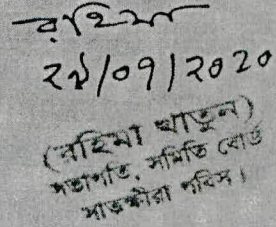 রহিমা
২৮/০৭/২০২০
(রহিমা খাতুন)
সভাপতি, সমিতি বোর্ড
সাতক্ষীরা পবিস।